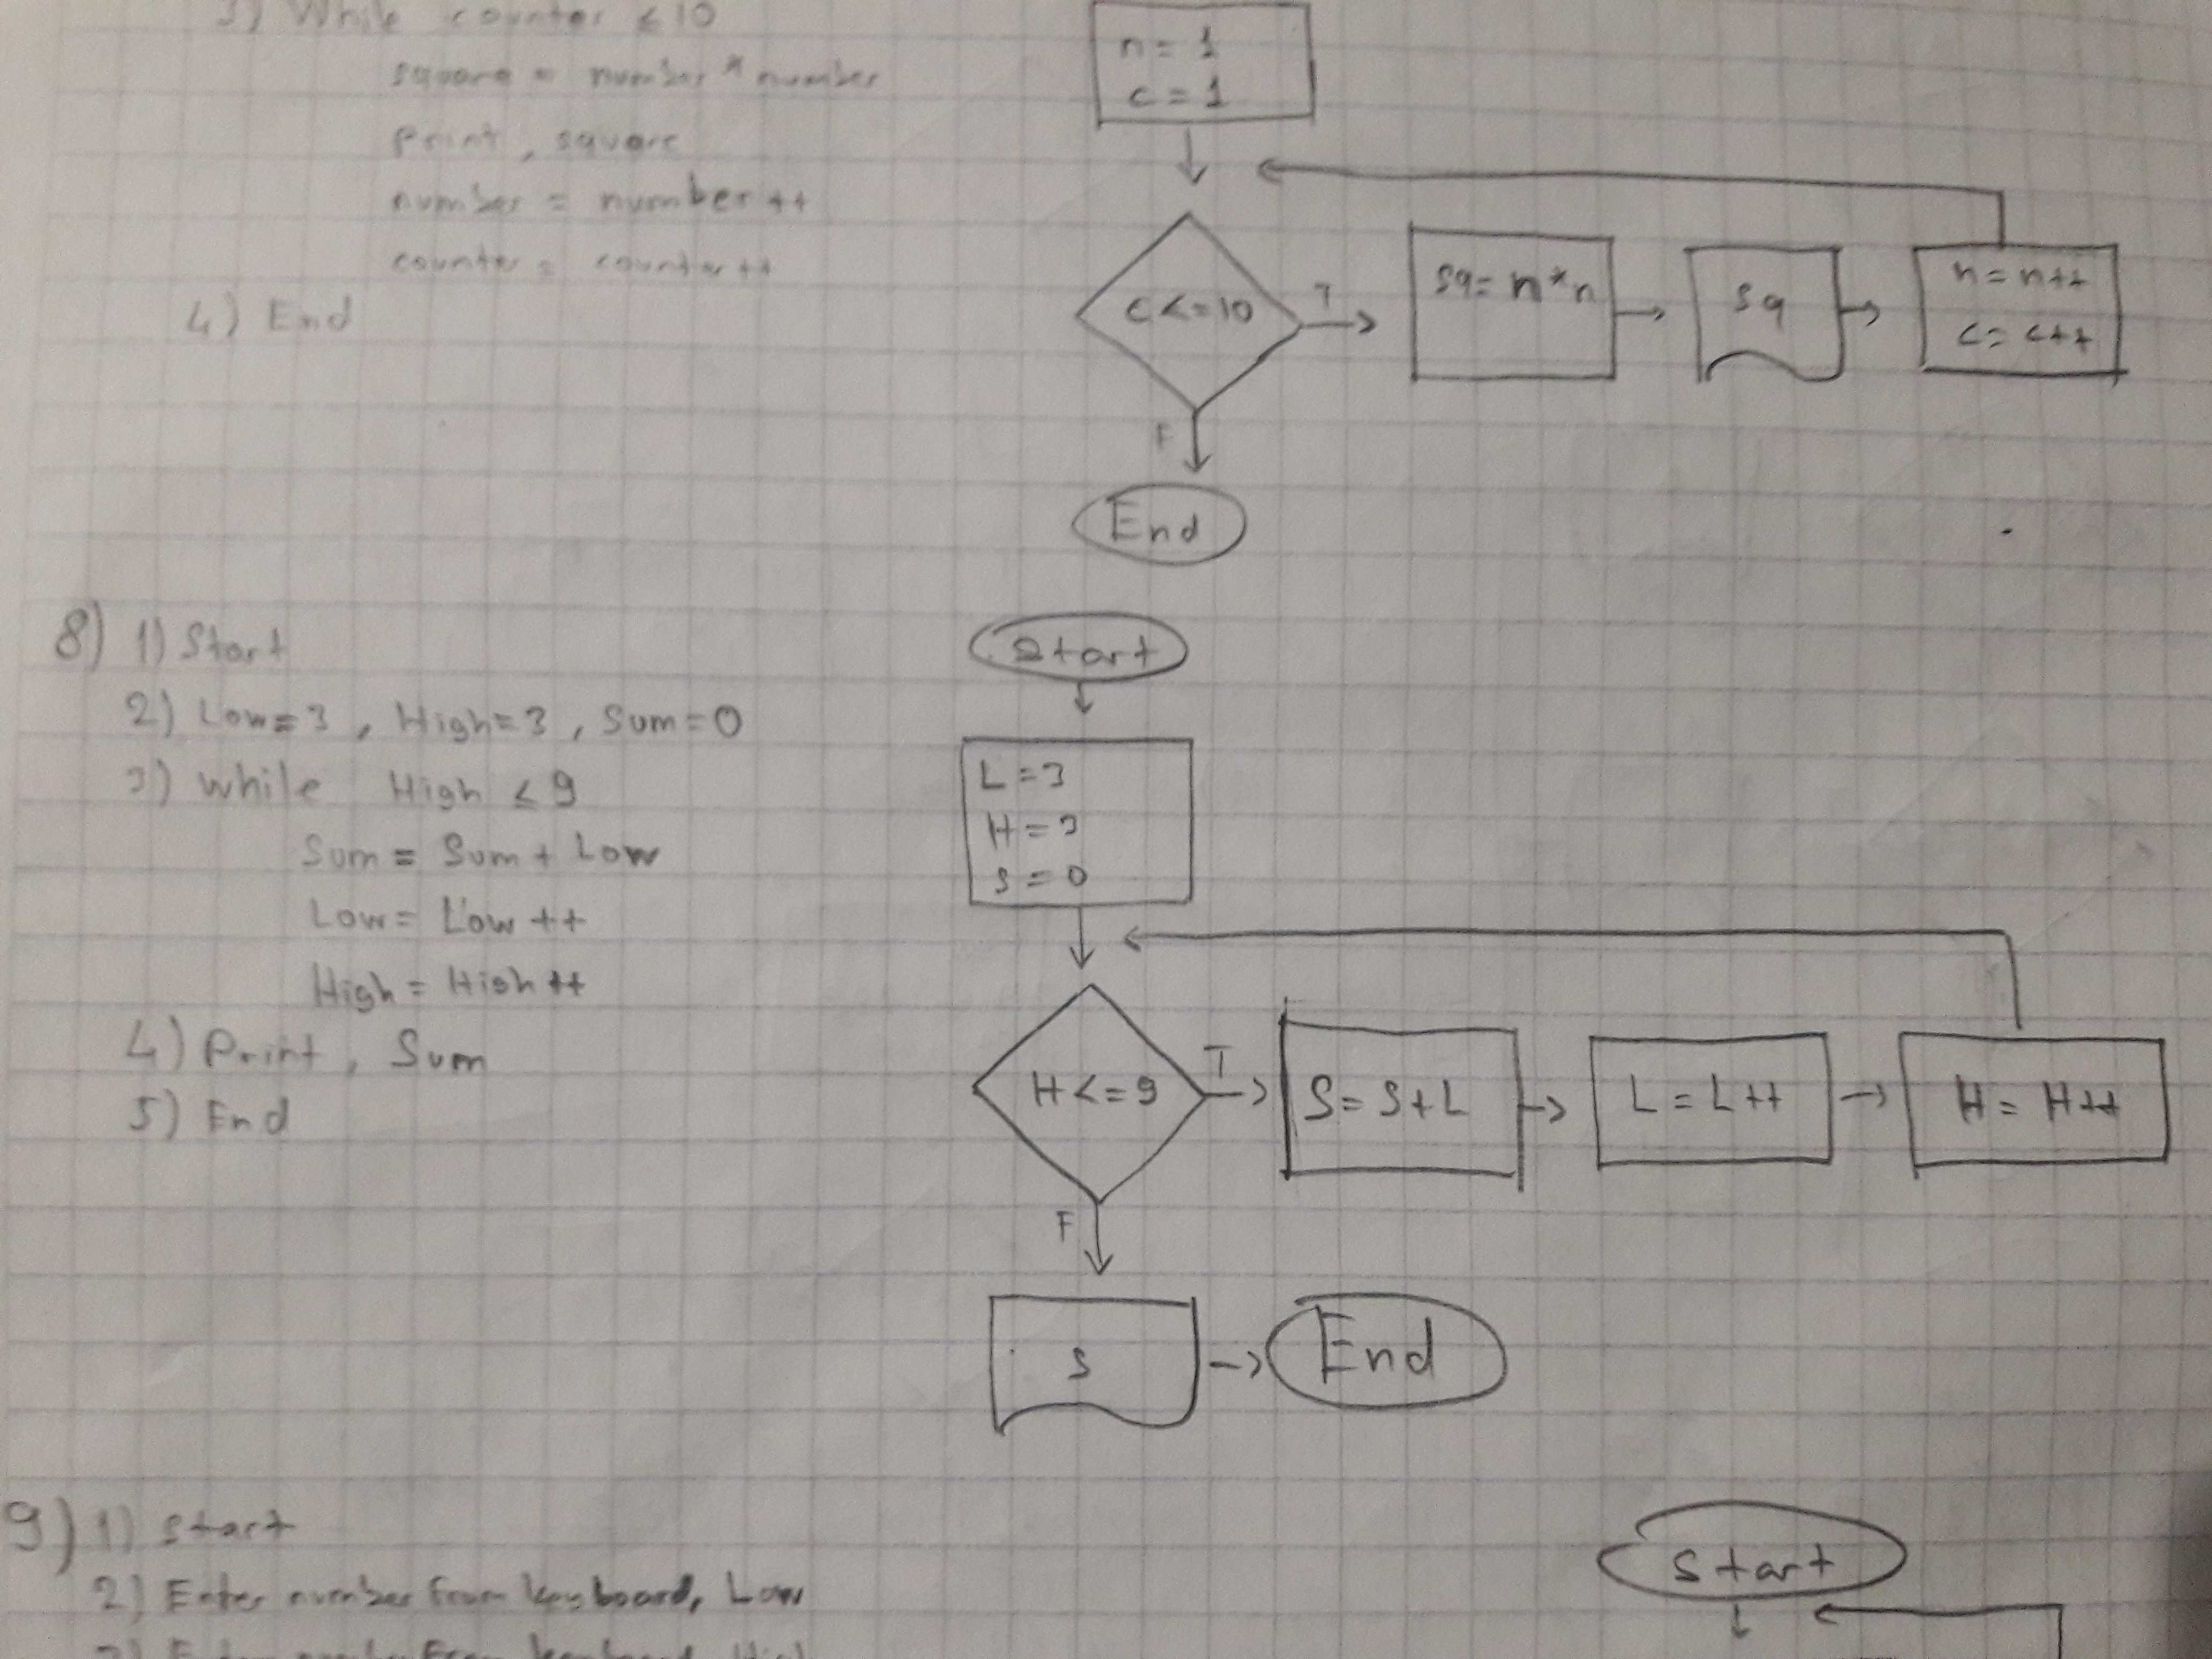 3) While counter ≤ 10
square = number * number
Print, square
number = number ++
counter = counter ++
4) End
n = 1
c = 1
c <= 10
T
sq = n*n
sq
n = n++
c = c++
F
End
8) 1) Start
2) Low = 3, High = 3, Sum = 0
3) while High ≤ 9
Sum = Sum + Low
Low = Low ++
High = High ++
4) Print, Sum
5) End
Start
L = 3
H = 3
S = 0
H <= 9
T
S = S + L
L = L ++
H = H ++
F
S
End
9) 1) Start
2) Enter number from keyboard, Low
3) Enter number from keyboard, High
Start